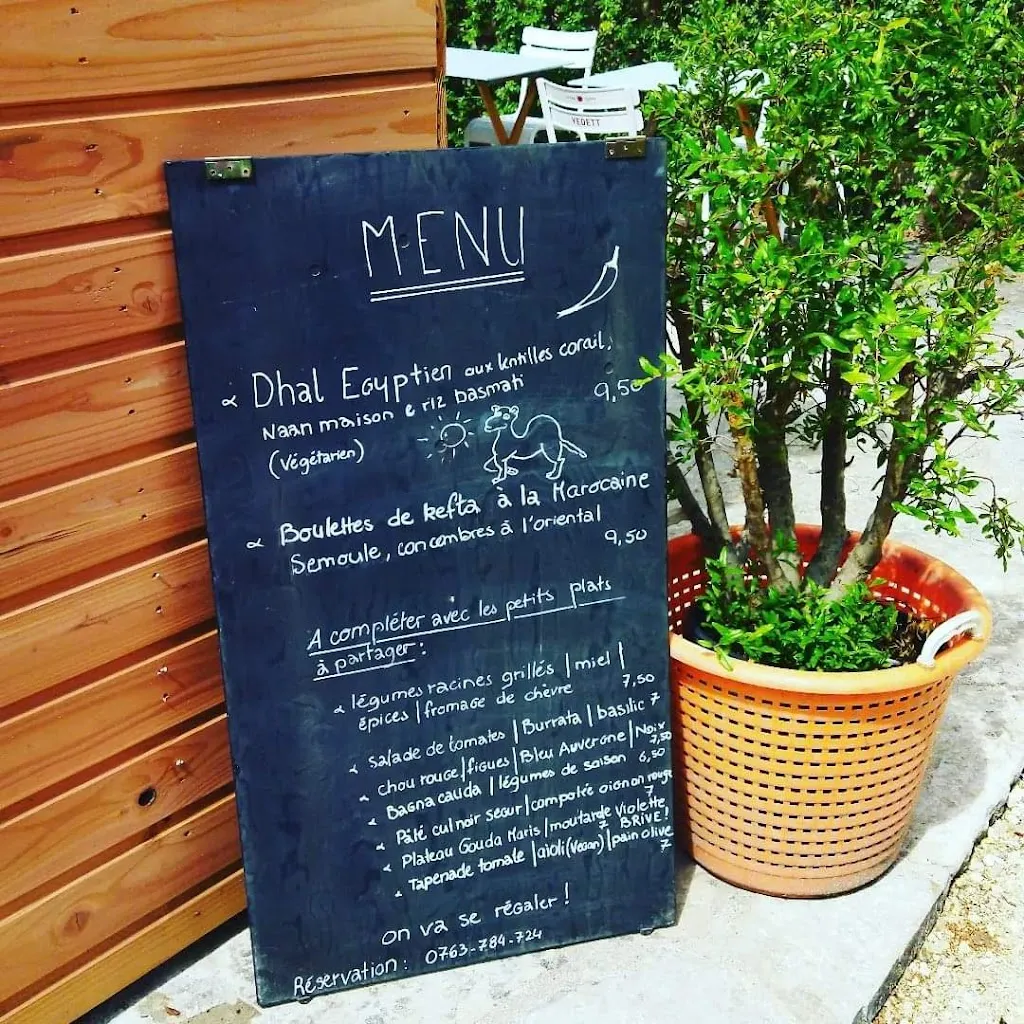 VEDETT
MENU
Dhal Egyptien aux lentilles corail,
Naan maison & riz basmati 9,50
(Végétarien)
Boulettes de kefta à la Marocaine
Semoule, concombres à l'oriental
9,50
A compléter avec les petits plats
à partager :
légumes racines grillés | miel |
épices | fromage de chèvre 7,50
salade de tomates | Burrata | basilic 7
chou rouge | figues | Bleu Auvergne | Noix 7,50
Bagna cauda | légumes de saison 6,50
Pâté cul noir segur | compotée oignon rouge 7
Plateau Gouda Maris | moutarde Violette BRIVE! 7
Tapenade tomate | aïoli (vegan) | pain olive 7
on va se régaler !
Réservation : 0763-784-724